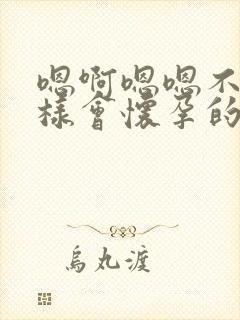 嗯啊嗯嗯不
樣會懷孕的
烏丸渡